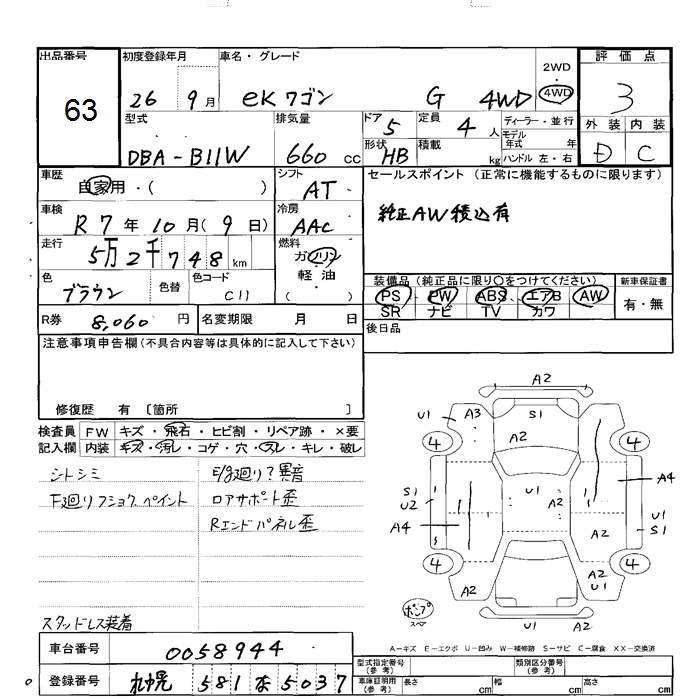 出品番号 初度登録年月 車名・グレード 2WD・4WD 評価点
63 26 9月 eKワゴン G 4WD 3
型式 排気量 ドア 定員 ディーラー・並行 外装 内装
DBA-B11W 660cc 5 4人 モデル年式 年 D C
形状 HB 積載 kg ハンドル 左・右
車歴 自家用・( ) シフト AT セールスポイント (正常に機能するものに限ります)
車検 R7年10月(9日) 冷房 AAC 純正AW積込有
走行 5万2千748km 燃料 ガソリン 軽油 ( )
色 ブラウン 色替 色コード C11 装備品 (純正品に限り○をつけてください) 新車保証書
PS PW ABS エアB AW 有・無
SR ナビ TV カワ
R券 8,060円 名変期限 月 日 後日品
注意事項申告欄(不具合内容等は具体的に記入して下さい)
修復歴 有 〔箇所 〕
検査員記入欄 FW キズ・飛石・ヒビ割・リペア跡・×要
内装 キズ・汚レ・コゲ・穴・スレ・キレ・破レ
シトシミ E/g廻り?異音
F廻りフショク、ペイント ロアサポート歪
Rエンドパネル歪
スタッドレス装着
A2
U1 A3 S1 A2
4 4
A2
A4
S1
U2 U1 U1
S1
A4 A2
4 4
A2 A2
U1
ポンプ
スペア
U1 A2
A-キズ E-エクボ U-凹み W-補修跡 S-サビ C-腐食 XX-交換済
車台番号 0058944 型式指定番号(参考) 類別区分番号(参考)
登録番号 札幌 581 な 5037 車庫証明用(参考) 長さ cm 幅 cm 高さ cm